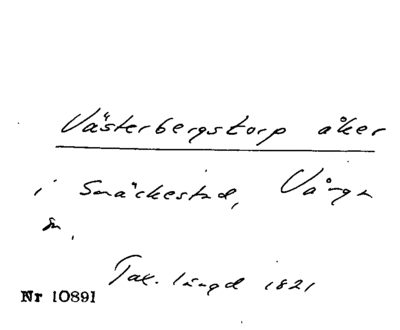 Västerbergstorp åker
i Smäckestad, Vånga
sn.
Tax. längd 1821
Nr 10891